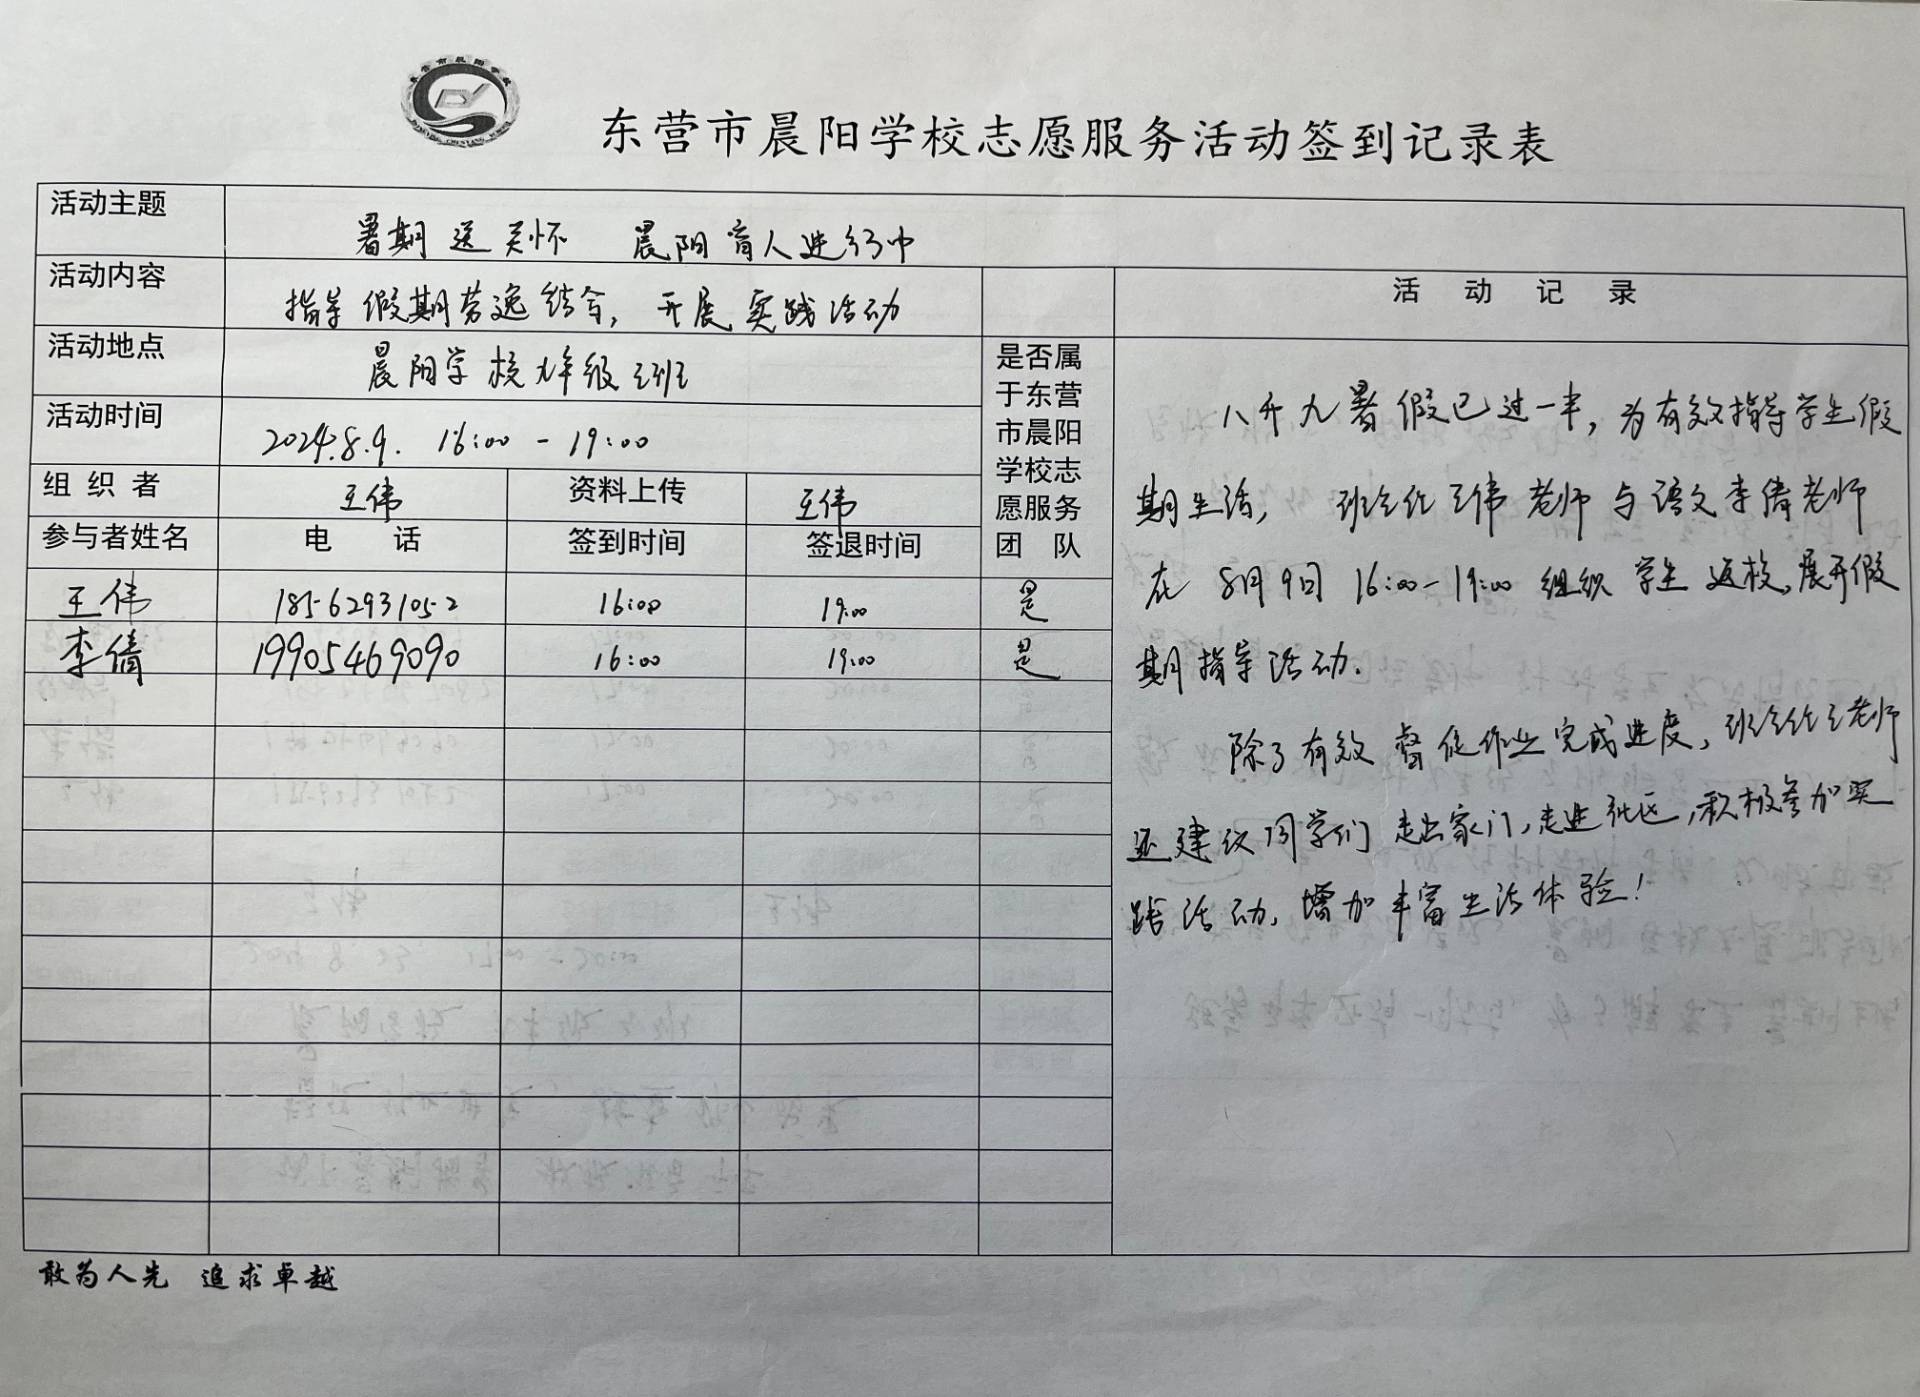 东营市晨阳学校志愿服务活动签到记录表
活动主题 暑期送关怀 晨阳育人进行中
活动内容 指导假期劳逸结合，开展实践活动
活动记录
活动地点 晨阳学校九年级三班
活动时间 2024.8.9. 16:00 - 19:00
组织者 王伟 资料上传 王伟
参与者姓名 电话 签到时间 签退时间
是否属
于东营
市晨阳
学校志
愿服务
团队
王伟 18562931052 16:00 19:00 是
李倩 19905469090 16:00 19:00 是
八升九暑假已过一半，为有效指导学生假
期生活，班主任王伟老师与语文李倩老师
在8月9日 16:00-19:00 组织学生返校，展开假
期指导活动.
除了有效督促作业完成进度，班主任王老师
还建议同学们走出家门，走进社区，积极参加实
践活动，增加丰富生活体验！
敢为人先 追求卓越